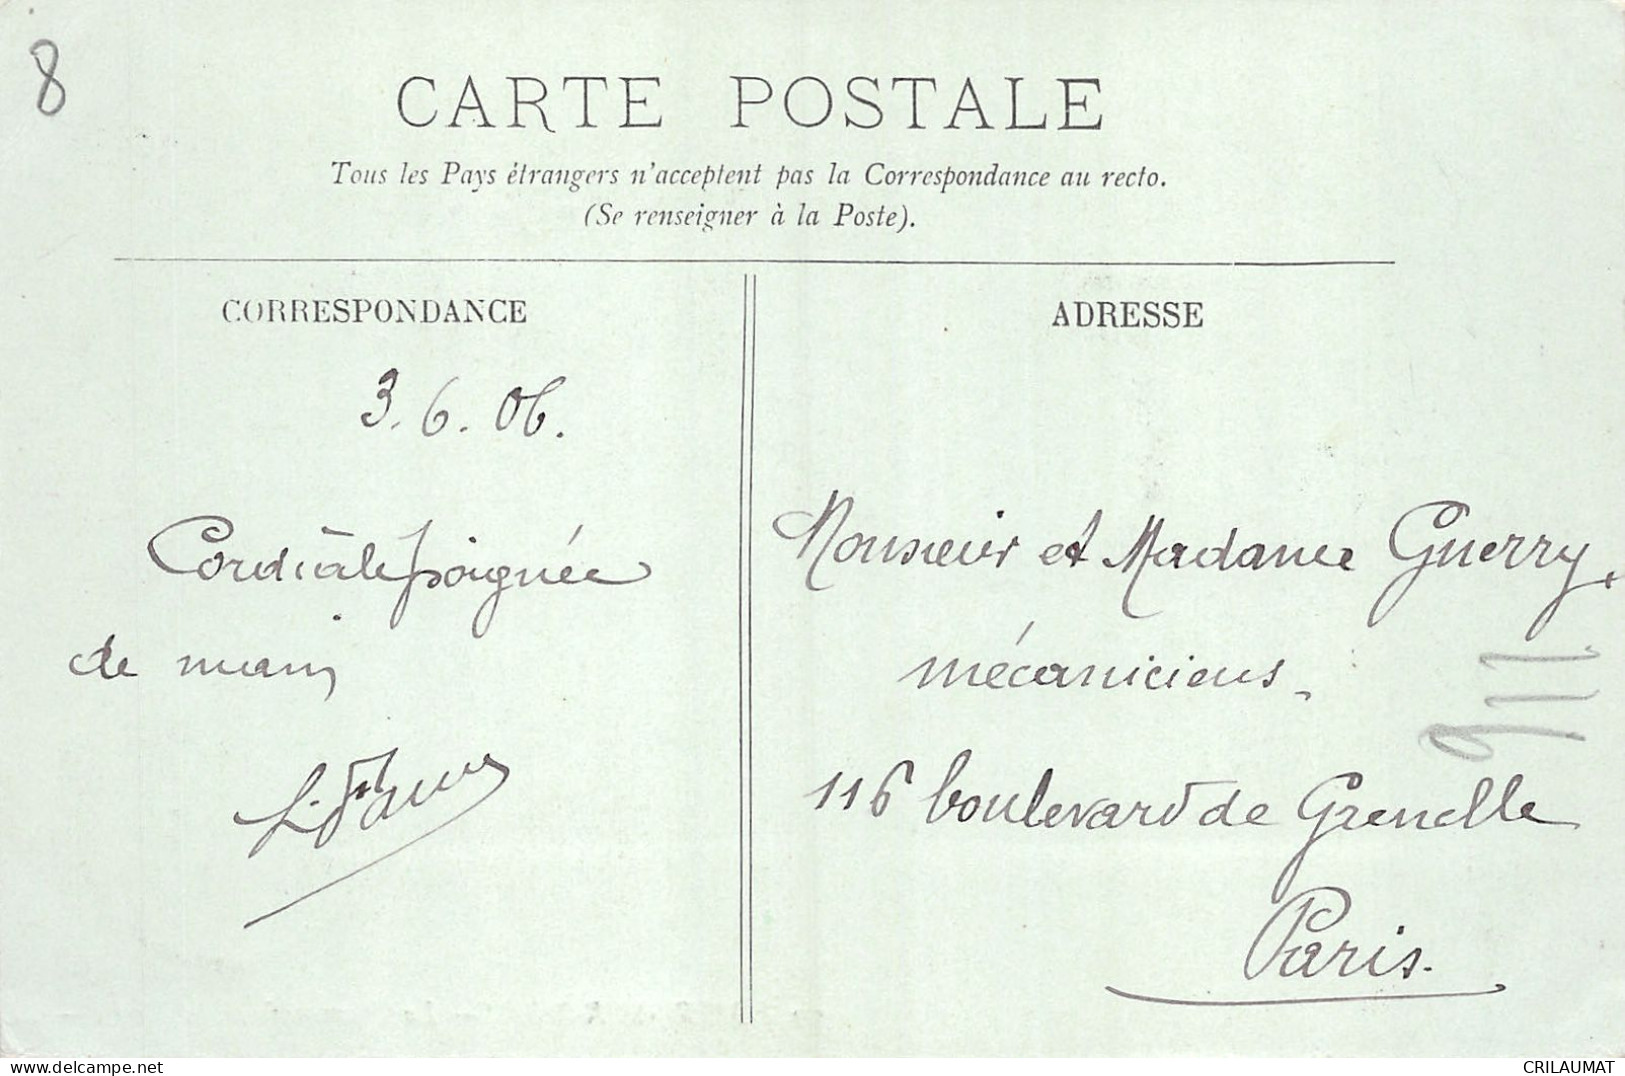 8
CARTE POSTALE
Tous les Pays étrangers n'acceptent pas la Correspondance au recto.
(Se renseigner à la Poste).
CORRESPONDANCE
3.6.06.
Cordiale poignée
de main
ADRESSE
Monsieur et Madame Guerry,
mécaniciens.
116 boulevard de Grenelle
Paris.
911.
delcampe.net
CRILAUMAT